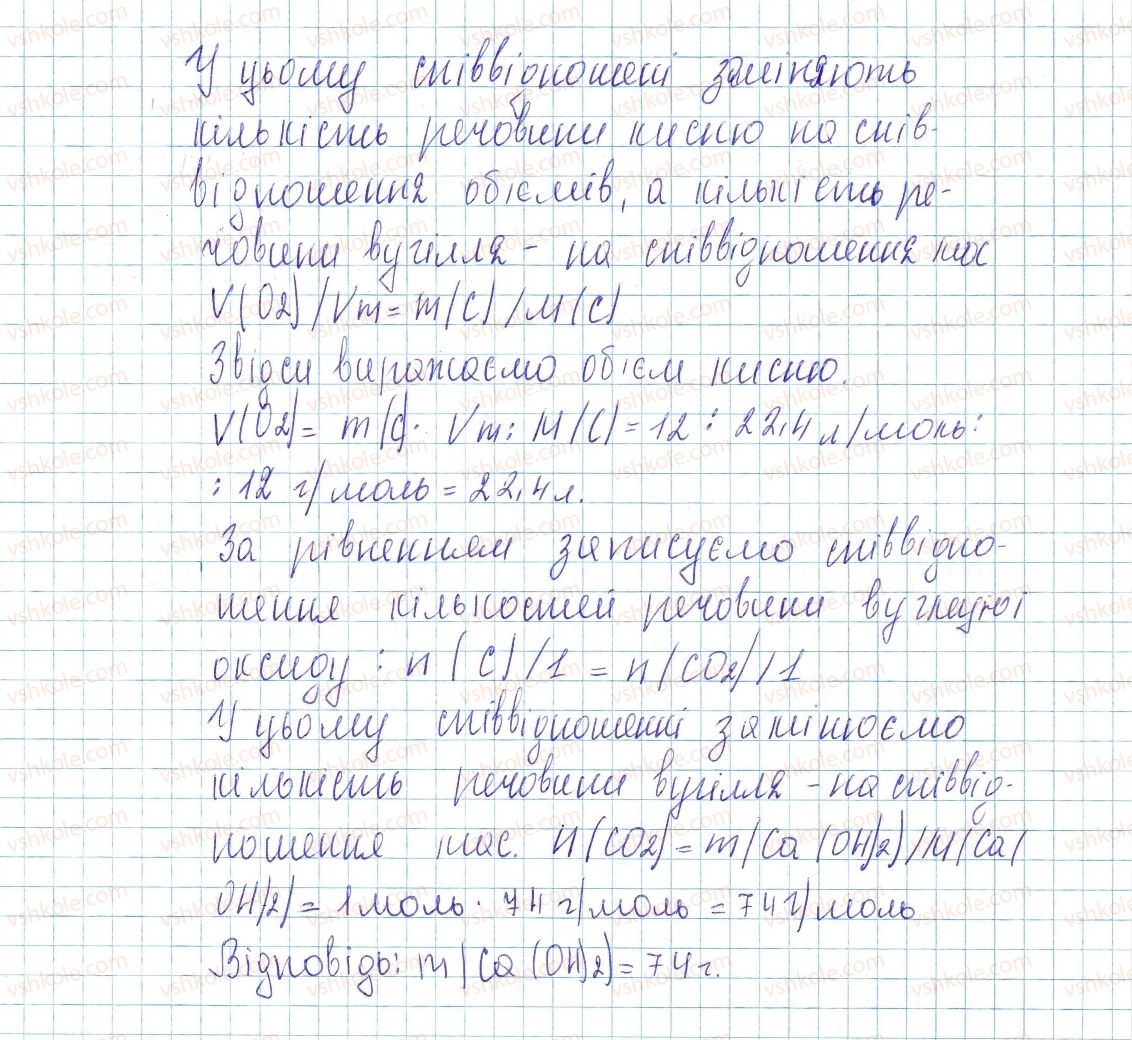 У цьому співвідношені заміняють
кількість речовини кисню на спів-
відношення обіємів, а кількість ре-
човини вугілля - на співвідношення мас
V(O2)/Vm = m(C)/M(C)
Звідси виражаємо обієм кисню.
V(O2) = m(C) · Vm : M(C) = 12 : 22,4 л/моль :
: 12 г/моль = 22,4 л.
За рівненням записуємо співвідно-
шення кількостей речовини вуглецю і
оксиду : n(C)/1 = n(CO2)/1
У цьому співвідношенні замінюємо
кількість речовини вугілля - на співвід-
ношення мас. n(CO2) = m(Ca(OH)2)/M(Ca(
OH)2) = 1 моль · 74 г/моль = 74 г/моль
Відповідь: m(Ca(OH)2) = 74 г.